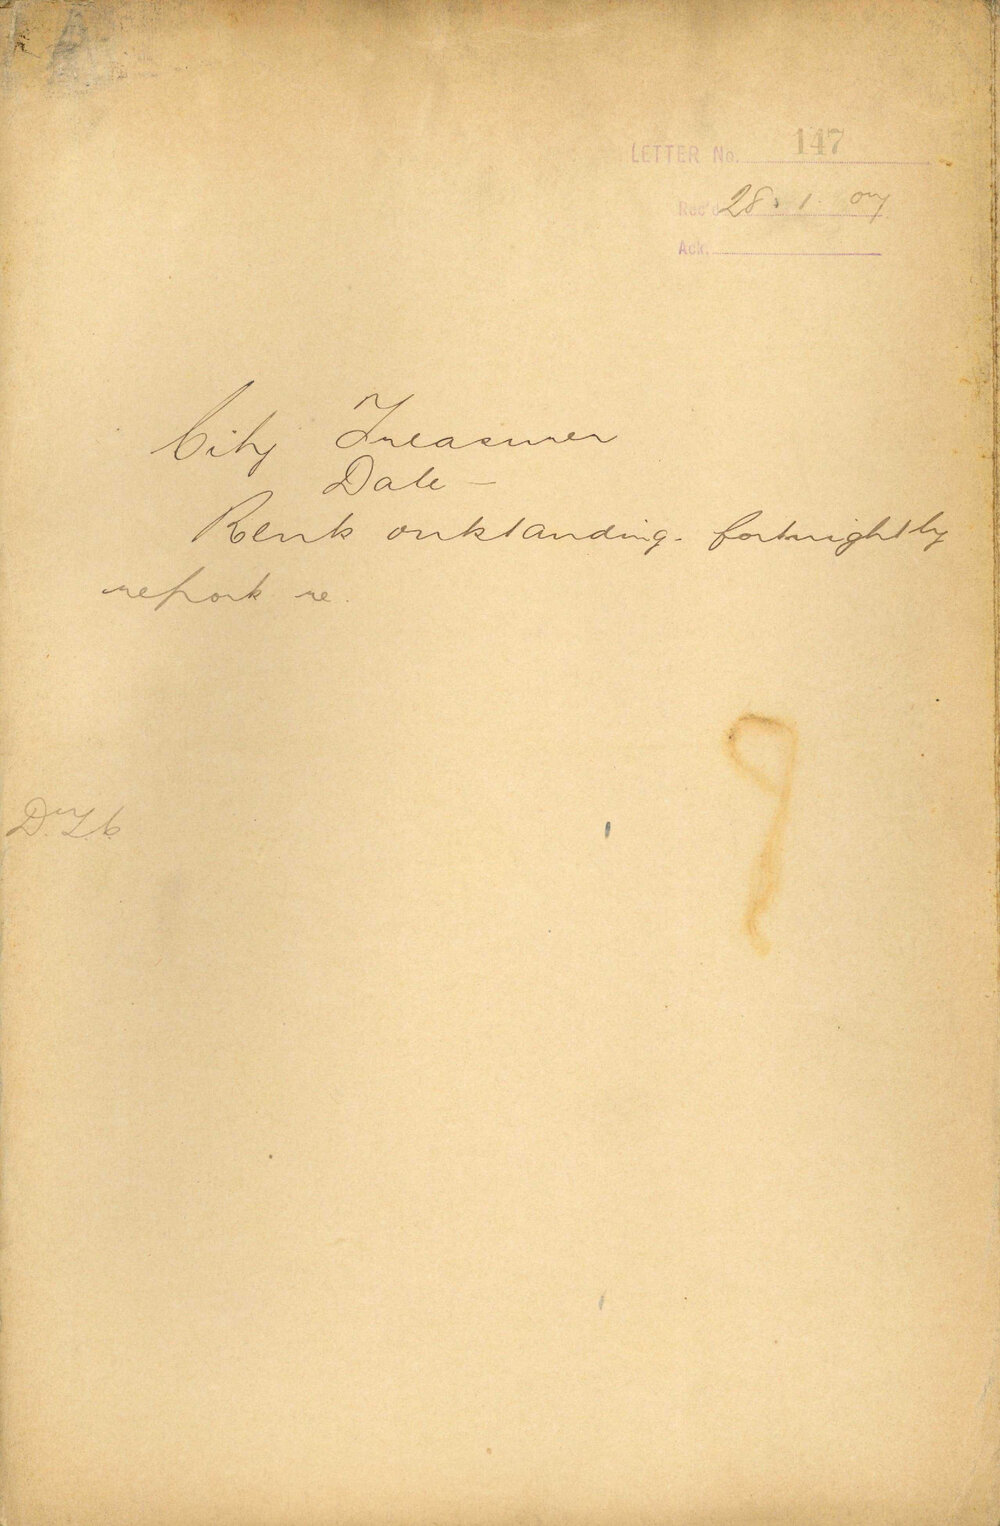 LETTER No. 147
Rec'd 28.1.07
Ack.
City Treasurer
Date —
Rent outstanding. fortnightly
report re.